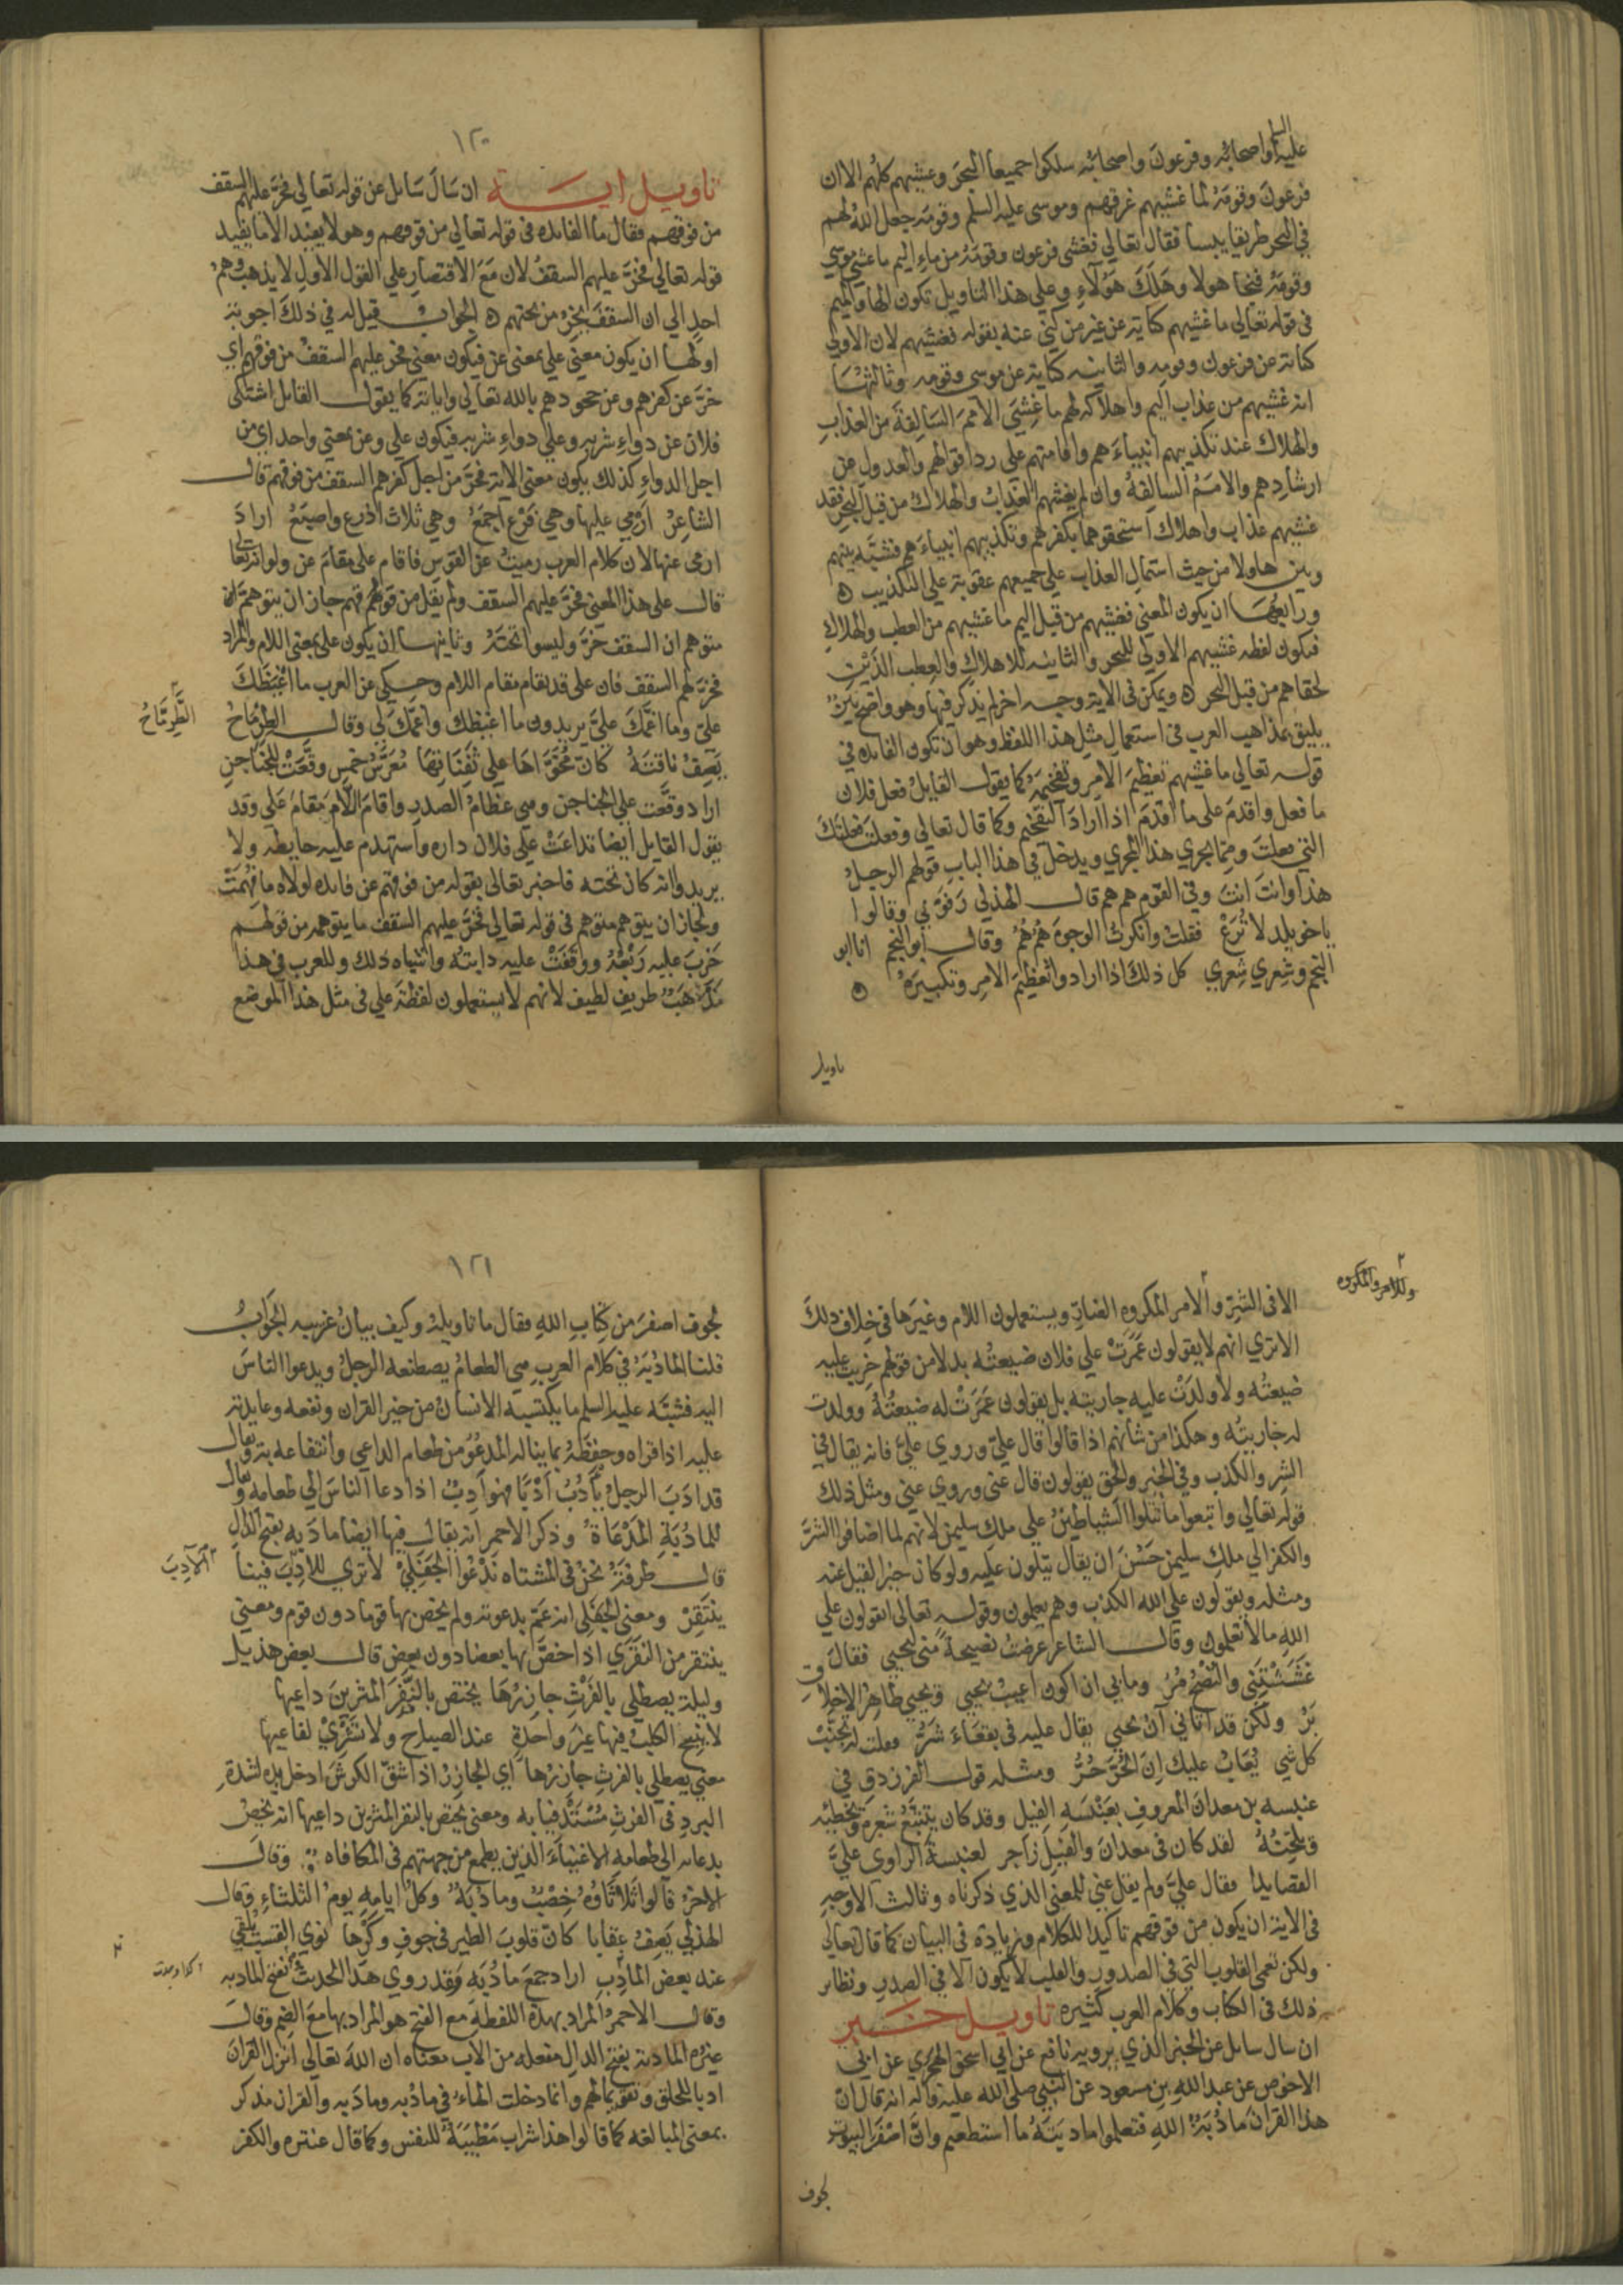 عليه السلم واصحابه وفرعون واصحابه سلكوا جميعا البحر وغشيهم كلهم الا ان
فرعون وقومه لما غشيهم غرقهم وموسى عليه السلم وقومه جعل الله لهم
في البحر طريقا يبسا فقال تعالي فغشى فرعون وقومه من ماء اليم ما غشي موسي
وقومه فنجا هولا وهلك هولاء وعلي هذا التاويل تكون الها والميم
في قوله تعالي ما غشيهم كناية عن غير من كني عنه بقوله فغشيهم لان الاولي
كناية عن فرعون وقومه والثانيه كناية عن موسى وقومه وثالثها
انه غشيهم من عذاب اليم واهلاكه لهم ما غشي الامم السالفة من العذاب
والهلاك عند تكذيبهم انبياءهم واقامتهم على رد اقوالهم والعدول عن
ارشادهم والامم السالفة وان لم يغشهم العذاب والهلاك من قبل البحر فقد
غشيهم عذاب واهلاك استحقوهما بكفرهم وتكذيبهم انبياءهم فشبه بينهم
وبين هاولا من حيث اشتمال العذاب علي جميعهم عقوبة علي التكذيب ه
ورابعها ان يكون المعني فغشيهم من قبل اليم ما غشيهم من العطب والهلاك
فتكون لفظه غشيهم الاولي للبحر والثانيه للاهلاك والعطب الذين
لحقاهم من قبل البحر ه ويمكن في الاية وجه اخر لم يذكر فيها وهو واضح بين
يليق بمذاهب العرب في استعمال مثل هذا اللفظ وهو ان تكون الفايده في
قوله تعالي ما غشيهم تعظيم الامر وتفخيمه كما يقول القايل فعل فلان
ما فعل واقدم على ما اقدم اذا اراد التفخيم وكما قال تعالي وفعلت فعلتك
التي فعلت ومما يجري هذا المجري ويدخل في هذا الباب قولهم الرجل
هذا وانت انت وفي القوم هم هم قال الهذلي رفوني وقالوا
يا خويلد لا ترع فقلت وانكرت الوجوه هم هم وقال ابو النجم انا ابو
النجم وشعري شعري كل ذلك اذا ارادوا تعظيم الامر وتكبيره ه
تاويل
١٢٠
تاويل اية ان سال سايل عن قوله تعالي فخر عليهم السقف
من فوقهم فقال ما الفايده في قوله تعالي من فوقهم وهو لا يفيد الا ما يفيد
قوله تعالي فخر عليهم السقف لان مع الاقتصار علي القول الاول لا يذهب وهم
احد الي ان السقف يخر من تحتهم ه الجواب قيل له في ذلك اجوبة
اولها ان يكون معني علي بمعنى عن فيكون معني فخر عليهم السقف من فوقهم اي
خر عن كفرهم وعن جحودهم بالله تعالي واياته كما يقول القايل اشتكى
فلان عن دواء شربه وعلي دواء شربه فيكون علي وعن بمعني واحد اي من
اجل الدواء كذلك يكون معني الاية فخر من اجل كفرهم السقف من فوقهم قال
الشاعر ارمي عليها وهي فرع اجمع وهي ثلاث اذرع واصبع اراد
ارمي عنها لان كلام العرب رميت عن القوس فاقام على مقام عن ولو انه تعالي
قال على هذا المعني فخر عليهم السقف ولم يقل من فوقهم جاز ان يتوهم
متوهم ان السقف خر وليسوا تحته وثانيها ان يكون على بمعنى اللام والمراد
فخر لهم السقف فان على قد تقام مقام اللام وحكي عن العرب ما اغيظك
علي وما اغمك علي يريدون ما اغيظك واغمك لي وقال الطرماح
الطرماح
يصف ناقته كان مخواها علي ثفناتها معرس خمس وقعت للجناجن
اراد وقعت علي الجناجن وهي عظام الصدر واقام اللام مقام على وقد
يقول القايل ايضا تداعت علي فلان داره واستهدم عليه حايطه ولا
يريد انه كان تحته فاخبر تعالى بقوله من فوقهم عن فايده لولاه ما فهمت
ولجاز ان يتوهم متوهم في قوله تعالي فخر عليهم السقف ما يتوهمه من قولهم
خرب عليه ربعه ووقفت عليه دابته واشباه ذلك وللعرب في هذا
مذهب طريف لطيف لانهم لا يستعملون لفظة علي في مثل هذا الموضع
وللامر المكروه
الا في الشر والامر المكروه ويستعملون اللام وغيرها في خلاف ذلك
الا تري انهم لا يقولون عمرت علي فلان ضيعته بدلا من قولهم خربت عليه
ضيعته ولا ولدت عليه جاريته بل يقولون عمرت له ضيعته وولدت
له جاريته وهكذا من شانهم اذا قالوا قال علي وروي علي فانه يقال في
الشر والكذب وفي الخير والحق يقولون قال عني وروي عني ومثل ذلك
قوله تعالي واتبعوا ما تتلوا الشياطين علي ملك سليمن لانهم لما اضافوا الشر
والكفر الي ملك سليمن حسن ان يقال يتلون عليه ولو كان خيرا لقيل عنه
ومثله ويقولون علي الله الكذب وهم يعلمون وقوله تعالى اتقولون علي
الله ما لا تعلمون وقال الشاعر عرضت نصيحة مني ليحيي فقال
غششتني والنصح مر وما بي ان اكون اعيب يحيي ويحيي طاهر الاخلاق
بر ولكن قد اتاني ان يحيي يقال عليه في بقعاء شر فقلت له تجنب
كل شي يعاب عليك ان الحر حر ومثله قول الفرزدق في
عنبسه بن معدان المعروف بعنبسه الفيل وقد كان يتتبع شعره ويخطيه
ويلحنه لقد كان في معدان والفيل زاجر لعنبسة الراوي علي
القصايدا فقال علي ولم يقل عني للمعني الذي ذكرناه وثالث الاوجه
في الاية ان يكون من فوقهم تاكيدا للكلام وزيادة في البيان كما قال تعالي
ولكن تعمي القلوب التي في الصدور والقلب لا يكون الا في الصدر ونظاير
ذلك في الكتاب وكلام العرب كثيره تاويل خبر
ان سال سايل عن الخبر الذي يرويه نافع عن ابي اسحق الهجري عن ابي
الاحوص عن عبد الله بن مسعود عن النبي صلى الله عليه واله انه قال ان
هذا القران مادبة الله فتعلموا مادبته ما استطعتم وان اصفر البيوت
لجوف
١٢١
لجوف اصفر من كتاب الله فقال ما تاويله وكيف بيان غريبه الجواب
قلنا المادبة في كلام العرب هي الطعام يصنعه الرجل ويدعوا الناس
اليه فشبه عليه السلم ما يكتسبه الانسان من خير القران ونفعه وعايدته
عليه اذا قراه وحفظه بما يناله المدعو من طعام الداعي وانتفاعه به ويقال
قد ادب الرجل يادب ادبا فهو ادب اذا دعا الناس الي طعامه ويقال
للمادبة المدعاة وذكر الاحمر انه يقال فيها ايضا مادبه بفتح الدال
قال طرفة نحن في المشتاه ندعوا الجفلي لا تري للادب فينا
الآدب
ينتقر ومعني الجفلي انه عم بدعوته ولم يخص بها قوما دون قوم ومعني
ينتقر من النقري اذا خص بها بعضا دون بعض قال بعض هذيل
وليلة يصطلي بالفرث جازرها يختص بالنقر المثرين داعيها
لا ينبح الكلب فيها غير واحدة عند الصباح ولا تسري افاعيها
معني يصطلي بالفرث جازرها اي الجازر اذا شق الكرش ادخل يده لشدة
البرد في الفرث مستدفيا به ومعنى يختص بالنقر المثرين داعيها انه يخص
بدعائه الي طعامه الاغنياء الذين يطمع من جهتهم في المكافاه وقال
الاخر قالوا ثلاثاؤه خصب ومادبة وكل ايامه يوم الثلثاء وقال
الهذلي يصف عقابا كان قلوب الطير في جوف وكرها نوي القسب يلقي
عند بعض المادب اراد جمع مادبه وقد روي هذا الحديث بفتح المادبه
وقال الاحمر المراد بهذه اللفظة مع الفتح هو المراد بها مع الضم وقال
غيره المادبة بفتح الدال مفعله من الادب معناه ان الله تعالي انزل القران
ادبا للخلق وتقويما لهم وانما دخلت الهاء في مادبه ومادبه والقران مذكر
بمعني المبالغه كما قالوا هذا شراب مطيبة للنفس وكما قال عنتره والكفر